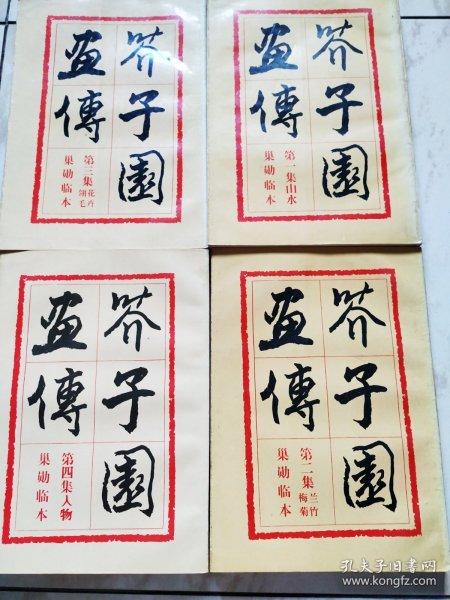 芥子園
畫傳
第三集花卉翎毛
巢勋临本
芥子園
畫傳
第一集山水
巢勋临本
芥子園
畫傳
第四集人物
巢勋临本
芥子園
畫傳
第二集兰竹梅菊
巢勋临本
孔夫子旧书网
www.kongfz.com